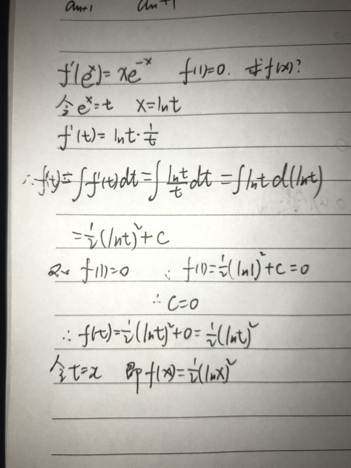 a_{n+1} a_{n+1}
f'(e^x)=xe^{-x} f(1)=0. 求f(x)?
令e^x=t x=lnt
f'(t)=lnt·\frac{1}{t}
∴f(t)=∫f'(t)dt=∫\frac{lnt}{t}dt=∫lnt d(lnt)
=\frac{1}{2}(lnt)^2+C
又∵f(1)=0 ∴f(1)=\frac{1}{2}(ln1)^2+C=0
∴C=0
∴f(t)=\frac{1}{2}(lnt)^2+0=\frac{1}{2}(lnt)^2
令t=x 即f(x)=\frac{1}{2}(lnx)^2